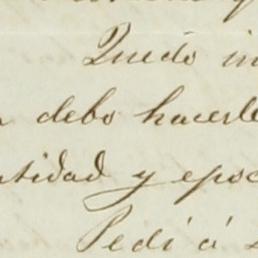 Quedo in
debo hacerle
ntidad y epoc
Pedi á